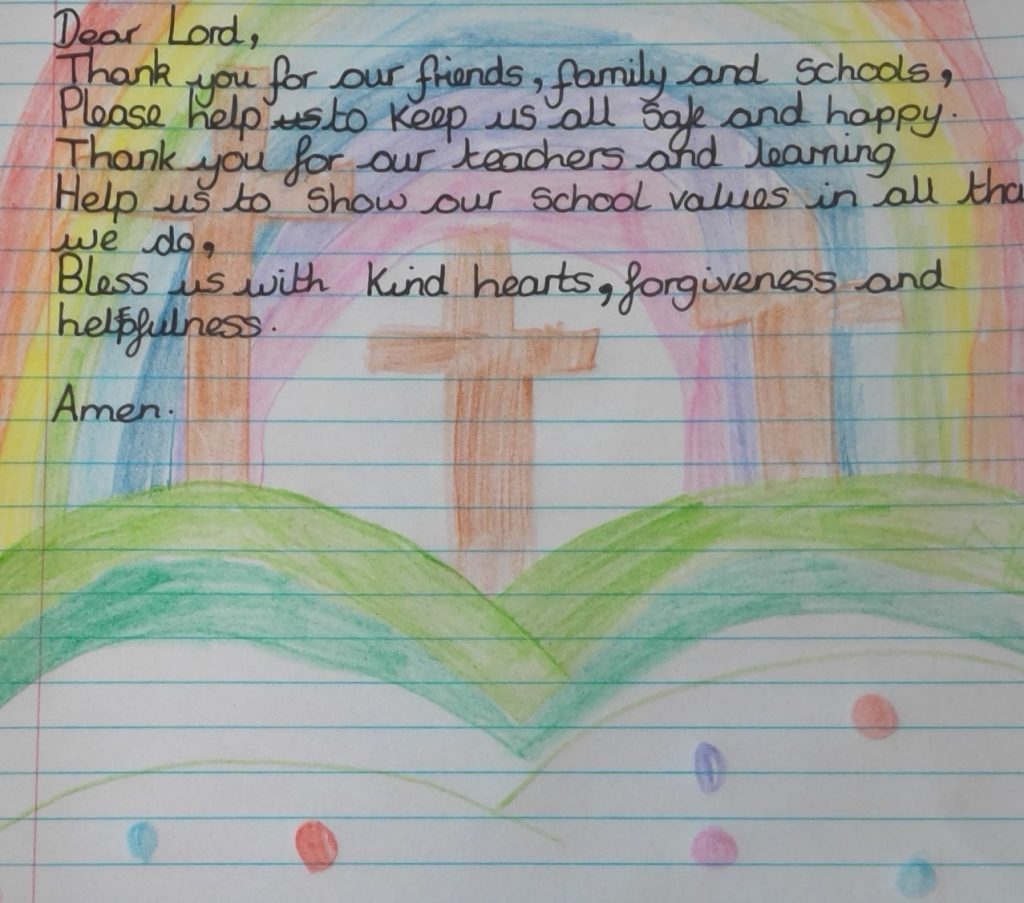 Dear Lord,
Thank you for our friends, family and schools,
Please help us to keep us all safe and happy.
Thank you for our teachers and learning
Help us to show our school values in all tha
we do,
Bless us with kind hearts, forgiveness and
helpfulness.
Amen.